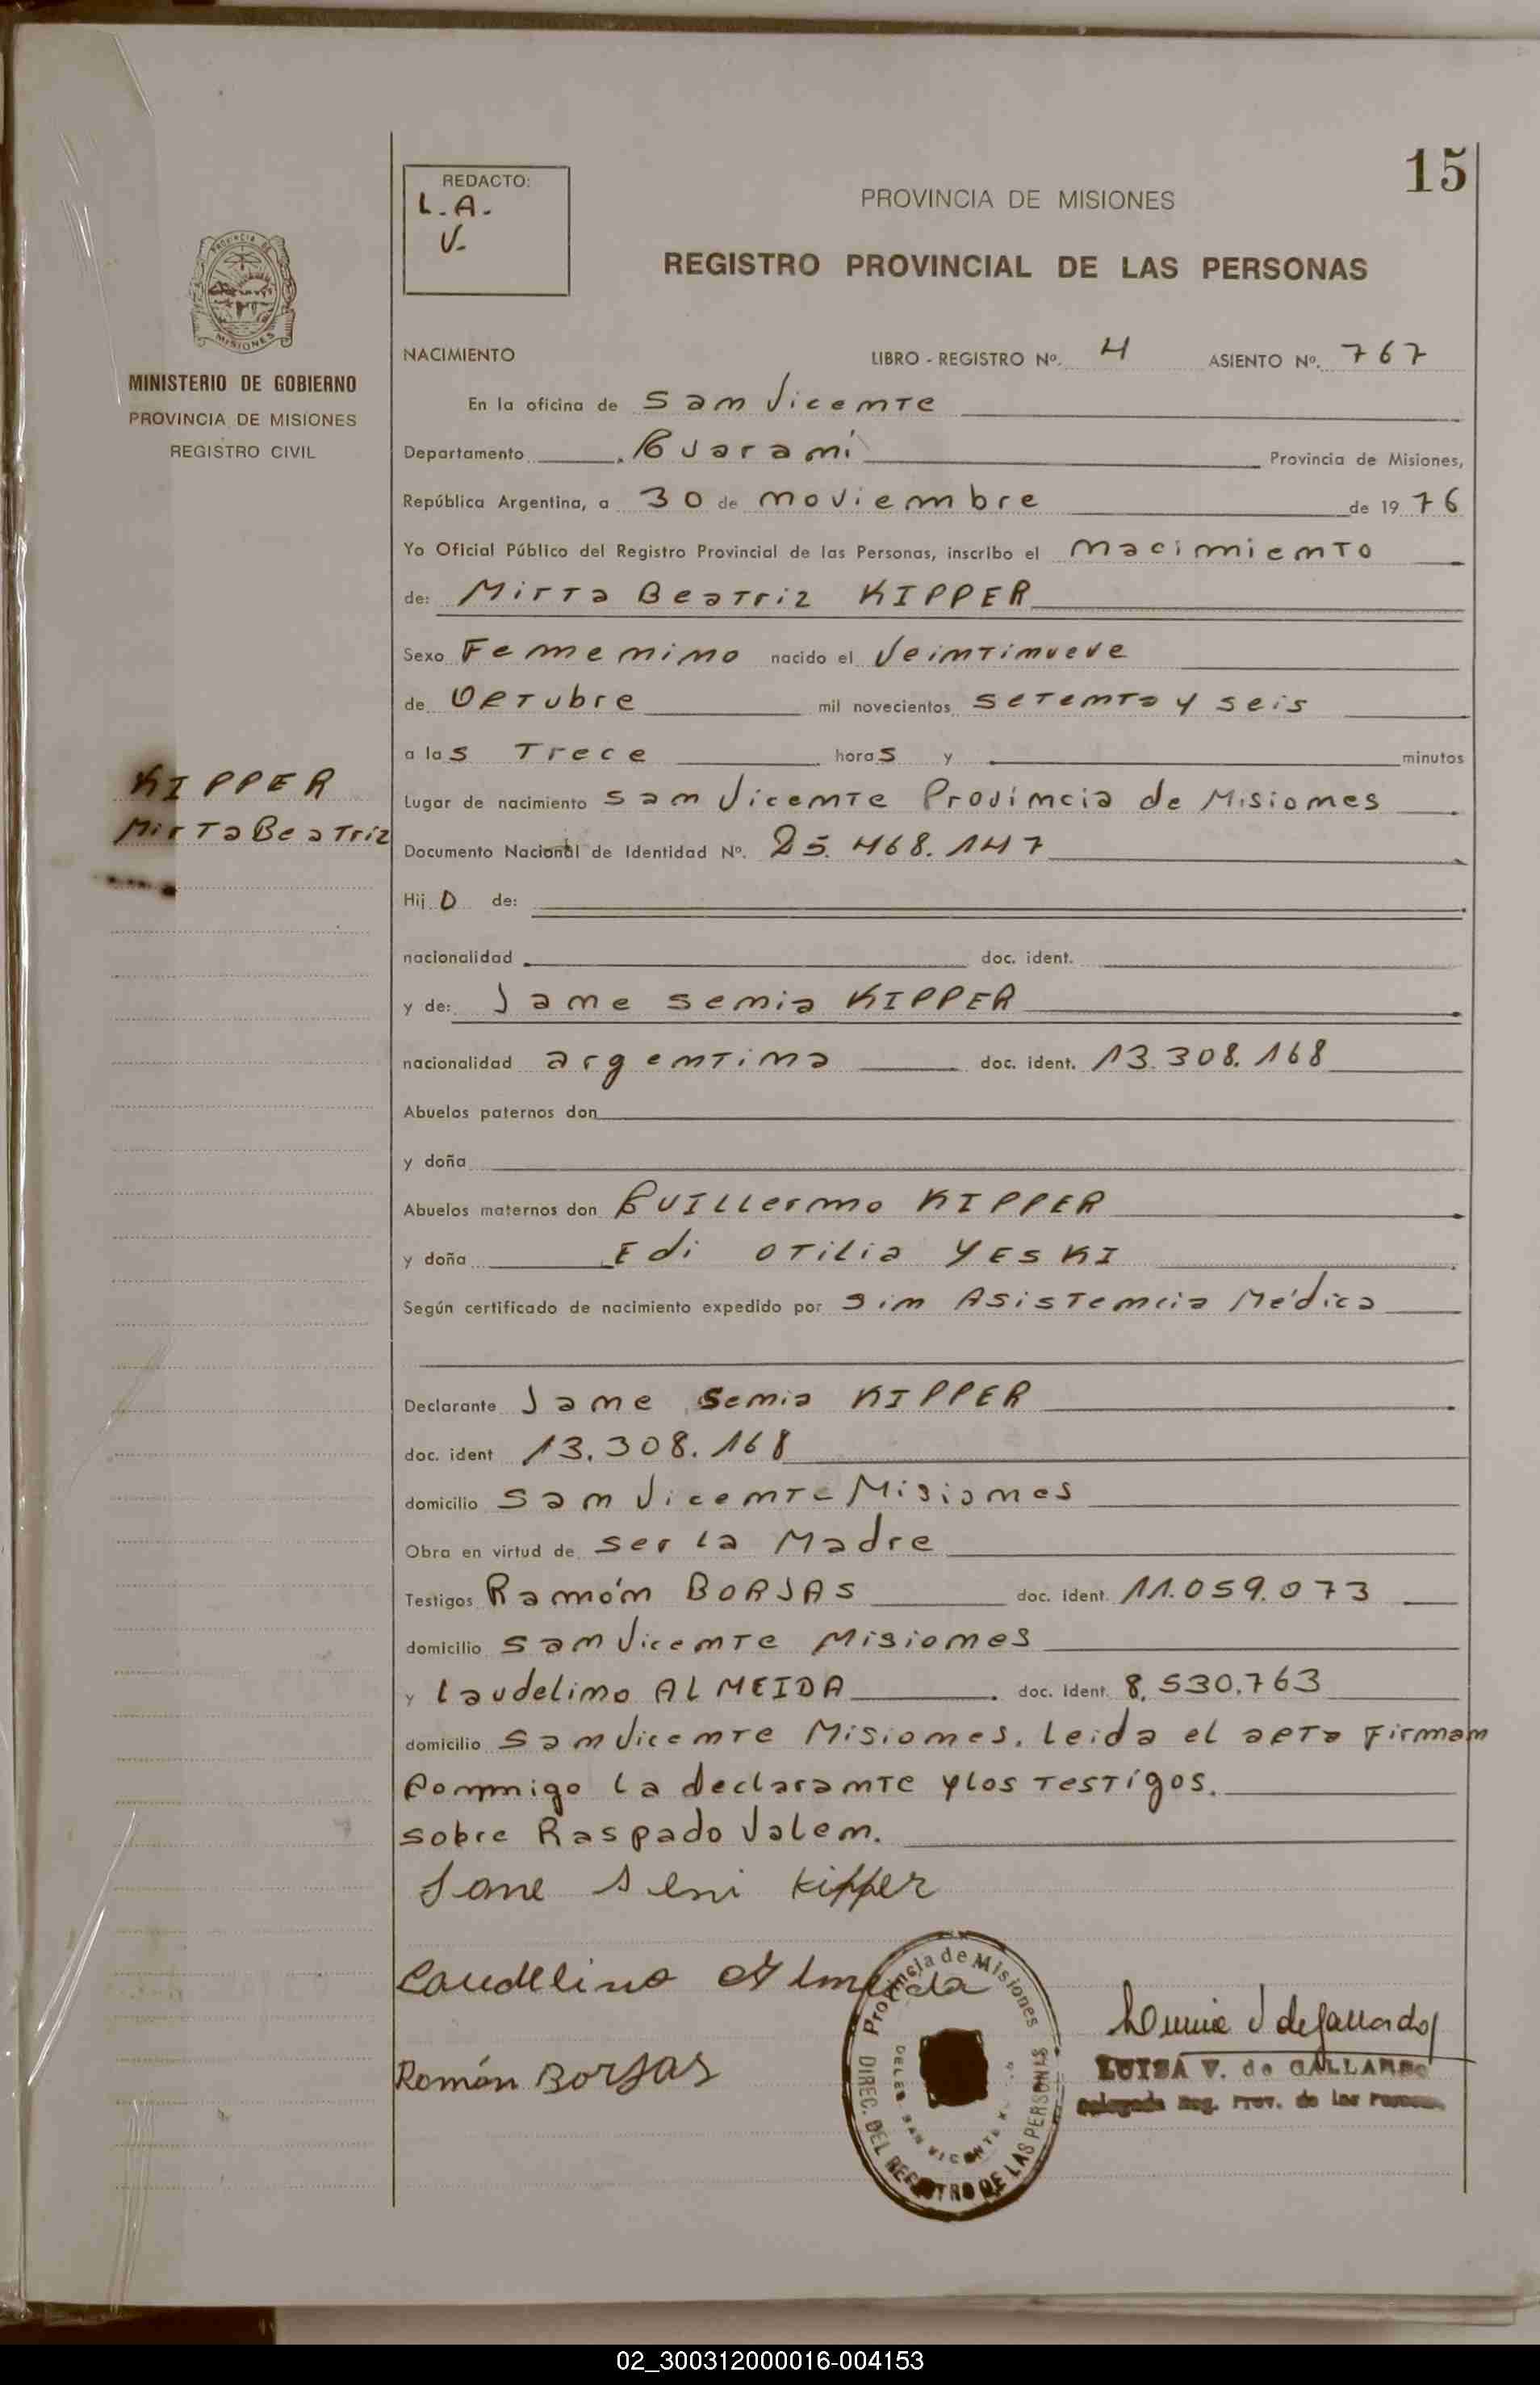 15
REDACTO:
L.A.
V.
PROVINCIA DE MISIONES
REGISTRO PROVINCIAL DE LAS PERSONAS
PROVINCIA DE
MISIONES
MINISTERIO DE GOBIERNO
PROVINCIA DE MISIONES
REGISTRO CIVIL
KIPPER
Mirta Beatriz
NACIMIENTO LIBRO - REGISTRO Nº. 4 ASIENTO Nº. 767
En la oficina de San Vicente
Departamento Guaraní Provincia de Misiones,
República Argentina, a 30 de noviembre de 19 76
Yo Oficial Público del Registro Provincial de las Personas, inscribo el nacimiento
de: Mirta Beatriz KIPPER
Sexo Femenino nacido el Veintinueve
de Octubre mil novecientos setenta y seis
a las Trece horas y minutos
Lugar de nacimiento San Vicente Provincia de Misiones
Documento Nacional de Identidad Nº. 25.468.147
Hij O de:
nacionalidad doc. ident.
y de: Jane Senia KIPPER
nacionalidad argentina doc. ident. 13.308.168
Abuelos paternos don
y doña
Abuelos maternos don Guillermo KIPPER
y doña Edi Otilia YESKI
Según certificado de nacimiento expedido por sin Asistencia Médica
Declarante Jane Senia KIPPER
doc. ident 13.308.168
domicilio San Vicente Misiones
Obra en virtud de ser la Madre
Testigos Ramón BORJAS doc. ident. 11.059.073
domicilio San Vicente Misiones
y Laudelino ALMEIDA doc. ident. 8.530.763
domicilio San Vicente Misiones. Leida el acta Firman
Conmigo la declarante y los Testigos.
sobre Raspado Valen.
Jane Seni Kipper
Laudelino Almeida
Ramón Borjas
Provincia de Misiones
DIREC. DEL REGISTRO DE LAS PERSONAS
SAN VICENTE
V de Gallardo
LUISA V. de GALLARDO
Delegada Reg. Prov. de las Personas
02_300312000016-004153